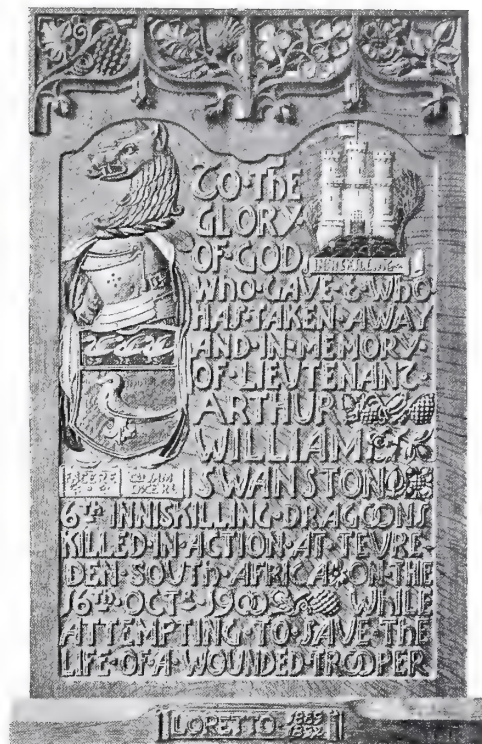 TO·THE
GLORY
OF·GOD
INNISKILLING
WHO·GAVE·&·WHO
HAS·TAKEN·AWAY
AND·IN·MEMORY·
OF·LIEUTENANT·
ARTHUR
WILLIAM
FACERE
SWANSTON
6TH INNISKILLING·DRAGOONS
KILLED·IN·ACTION·AT·TEVRE-
DEN·SOUTH·AFRICA·ON·THE
16TH·OCT·1900 WHILE
ATTEMPTING·TO·SAVE·THE
LIFE·OF·A·WOUNDED·TROOPER
LORETTO 1889
1892